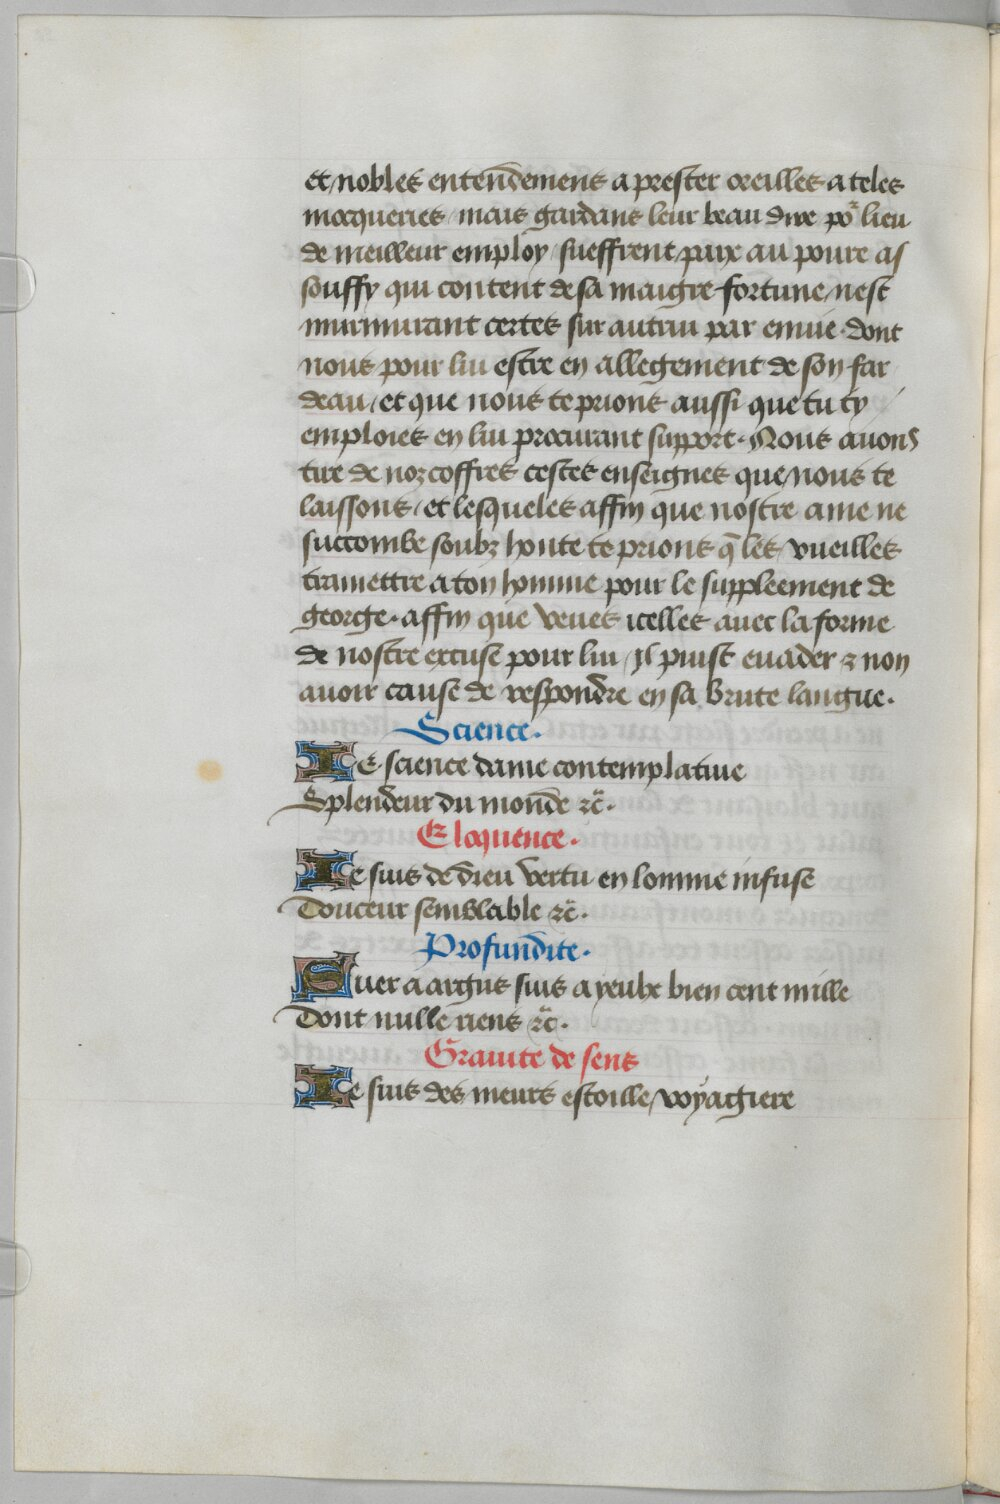 et nobles entendemens a prester oreilles a teles
mocqueries / mais gardans leur beau dire por̄ lieu
de meilleur employ / sueffrent paix au poure as
souffy qui content de sa maigre fortune / nest
murmurant certes sur autrui par enuie · dont
nous pour lui estre en allegement de son far
deau / et que nous te prions aussi que tu ty
emploies en lui procurant support · Nous auons
tire de noz coffres cestes enseignes que nous te
laissons / et lesqueles affin que nostre ame ne
succombe soubz honte te prions q̄ les vueilles
tramettre a ton homme pour le suppleement de
george · affin que veues icelles auec la forme
de nostre excuse pour lui / Il puist euader ⁊ non
auoir cause de respondre en sa brute langue ·
Science ·
Ie science dame contemplatiue
Splendeur du monde ⁊c̄ ·
Eloquence ·
Ie suis de dieu vertu en lomme infuse
Douceur semblable ⁊c̄ ·
Profundite ·
Suer a argus suis a yeulx bien cent mille
Dont nulle riens ⁊c̄ ·
Grauite de sens
Ie suis des meurs estoille / voyagiere